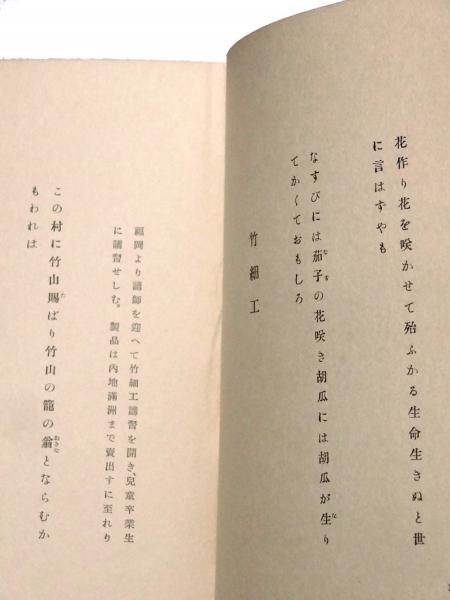 花作り花を咲かせて殆ふかる生命生きぬと世
に言はすやも
なすびには茄子の花咲き胡瓜には胡瓜が生り
てかくておもしろ
竹細工
福岡より講師を迎へて竹細工講習を開き、兒童卒業生
に講習せしむ。製品は内地滿洲まで賣出すに至れり
この村に竹山賜ばり竹山の籠の翁とならむか
もわれは